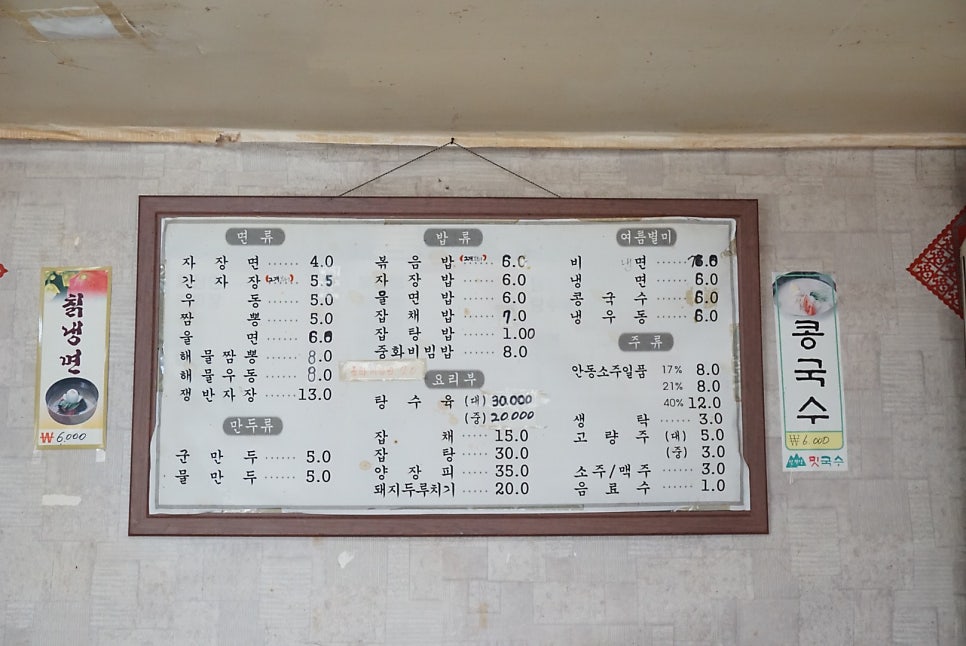 면 류
자 장 면 ······ 4.0
간 자 장 ···· 5.5
우 동 ······ 5.0
짬 뽕 ······ 5.0
울 면 ······ 6.0
해 물 짬 뽕 ······ 8.0
해 물 우 동 ······ 8.0
쟁 반 자 장 ······ 13.0
만두류
군 만 두 ······ 5.0
물 만 두 ······ 5.0
밥 류
볶 음 밥 ····· 6.0
자 장 밥 ······ 6.0
물 면 밥 ······ 6.0
잡 채 밥 ······ 7.0
잡 탕 밥 ······ 1.00
중화비빔밥 ······ 8.0
요리부
탕 수 육 (대) 30.000
(중) 20000
잡 채 ······ 15.0
잡 탕 ······ 30.0
양 장 피 ······ 35.0
돼지두루치기 ····· 20.0
여름별미
비 냉면 ······
냉 면 ······ 6.0
콩 국 수 ······ 6.0
냉 우 동 ······ 6.0
주 류
안동소주일품 17% 8.0
21% 8.0
40% 12.0
생 탁 ······ 3.0
고 량 주 (대) 5.0
(중) 3.0
소주/맥주 ······ 3.0
음 료 수 ······ 1.0
칡냉면
₩ 6,000
콩국수
₩ 6.000
맛국수